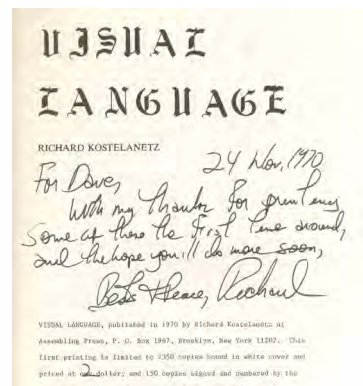 VISUAL
LANGUAGE
RICHARD KOSTELANETZ
24 Nov, 1970
For Dave,
With my thanks for printing
some of these the first time around,
and the hope you'll do more soon,
Best & Peace, Richard
VISUAL LANGUAGE, published in 1970 by Richard Kostelanetz at
Assembling Press, P. O. Box 1967, Brooklyn, New York 11202. This
first printing is limited to 2350 copies bound in white cover and
priced at dollar; and 150 copies signed and numbered by the